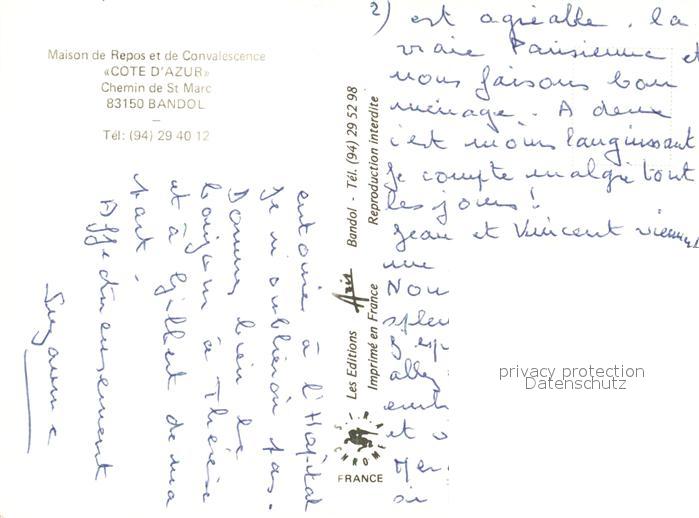 Maison de Repos et de Convalescence
«COTE D'AZUR»
Chemin de St Marc
83150 BANDOL
Tél: (94) 29 40 12
2) est agréable, la
vraie Parisienne et
nous faisons bon
ménage. A deux
c'est moins languissant
Je compte malgré tout
les jours!
Jean et Vincent viennent
me
Nou
splen
J'esp
allez
emb
et v
Mer
si
entouré à l'Hôpital
Je n'oublierai pas.
Donnez bien le
bonjour à Thérèse
et à Gilbert de ma
part.
Affectueusement
Suzanne
Les Editions Aris Bandol - Tél. (94) 29 52 98
Imprimé en France Reproduction interdite
FRANCE
privacy protection
Datenschutz